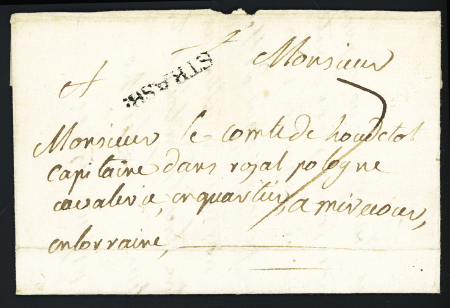 Monsieur
STRASB.
Monsieur le comte de houdetot
capitaine dans royal pologne
cavalerie, en quartier, a mirecour,
en lorraine,